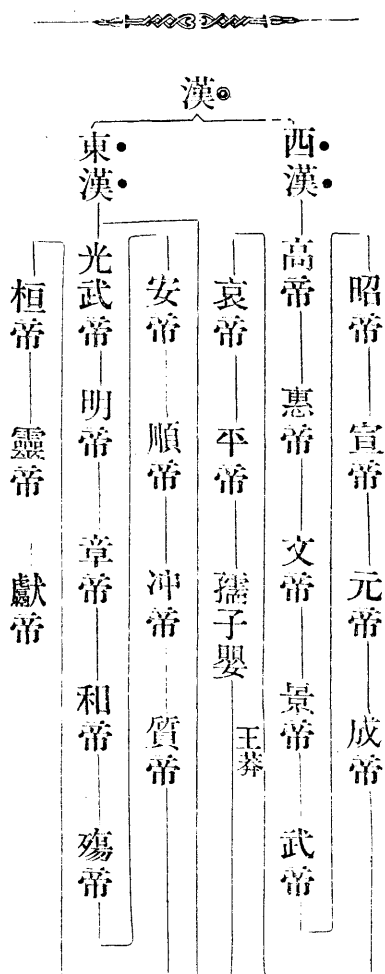 漢
西漢
高帝 惠帝 文帝 景帝 武帝
昭帝 宣帝 元帝 成帝
哀帝 平帝 孺子嬰
王莽
東漢
光武帝 明帝 章帝 和帝 殤帝
安帝 順帝 冲帝 質帝
桓帝 靈帝 獻帝